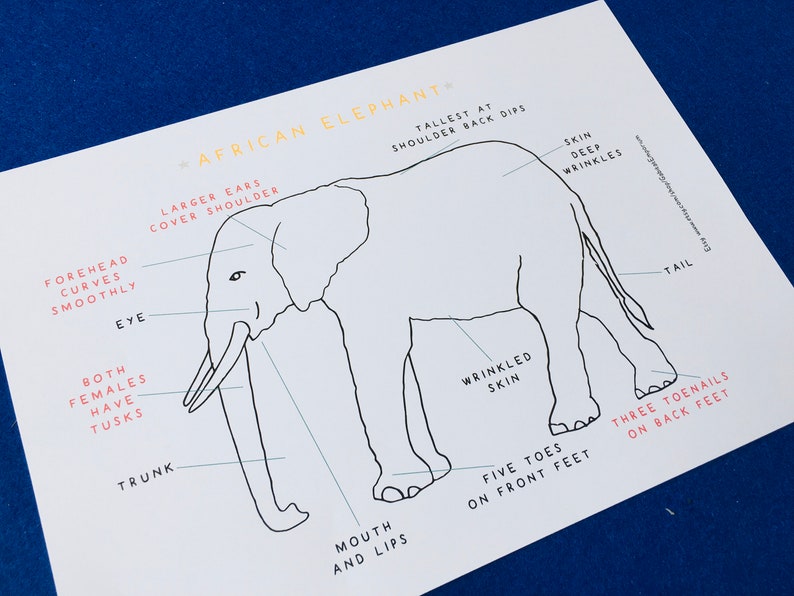 AFRICAN ELEPHANT
TALLEST AT
SHOULDER BACK DIPS
SKIN
DEEP
WRINKLES
Etsy www.etsy.com/shop/GabetasEmporium
LARGER EARS
COVER SHOULDER
FOREHEAD
CURVES
SMOOTHLY
EYE
TAIL
BOTH
FEMALES
HAVE
TUSKS
WRINKLED
SKIN
THREE TOENAILS
ON BACK FEET
TRUNK
FIVE TOES
ON FRONT FEET
MOUTH
AND LIPS